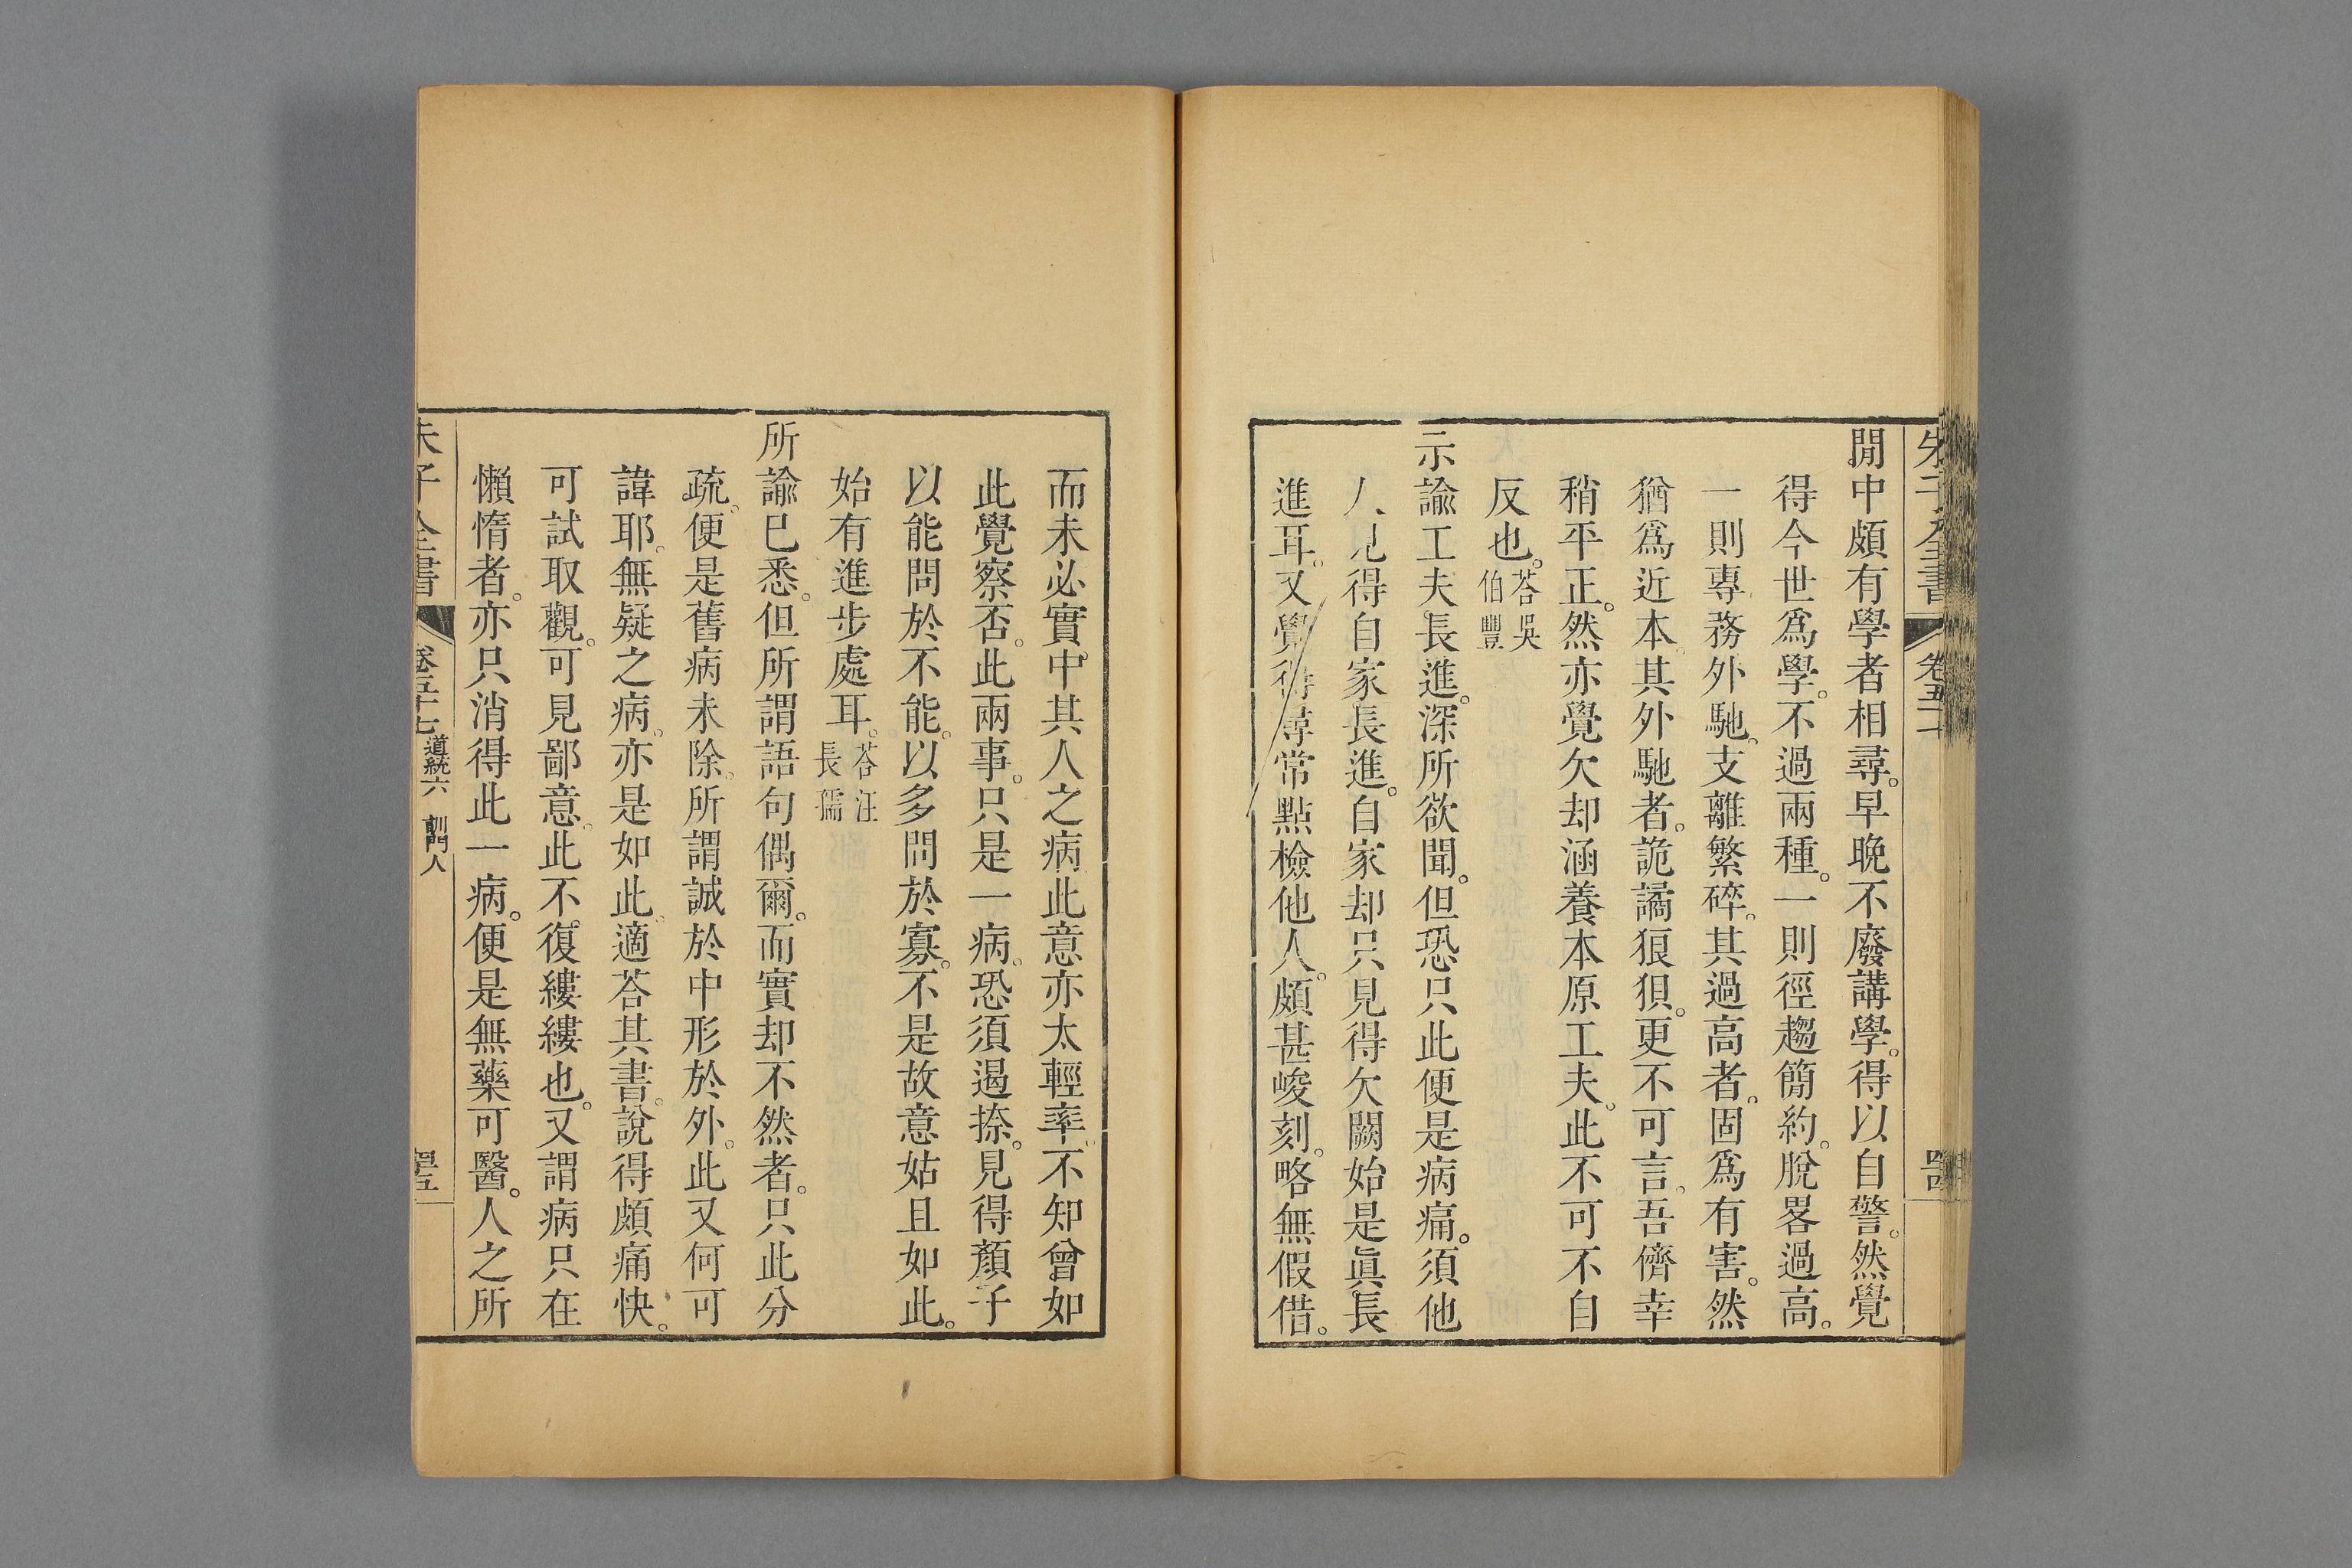 朱子全書 卷五十
閒中頗有學者相尋。早晚不廢講學。得以自警。然覺
得今世爲學。不過兩種。一則徑趨簡約。脫畧過高。
一則專務外馳。支離繁碎。其過高者。固爲有害。然
猶爲近本。其外馳者。詭譎狼狽。更不可言。吾儕幸
稍平正。然亦覺欠却涵養本原工夫。此不可不自
反也。荅吳伯豐
示諭工夫長進。深所欲聞。但恐只此便是病痛。須他
人見得自家長進。自家却只見得欠闕始是眞長
進耳。又覺得尋常點檢他人。頗甚峻刻。略無假借。
而未必實中其人之病。此意亦太輕率。不知曾如
此覺察否。此兩事。只是一病。恐須遏捺。見得顏子
以能問於不能。以多問於寡。不是故意姑且如此。
始有進步處耳。荅汪長孺
所諭已悉。但所謂語句偶爾。而實却不然者。只此分
疏。便是舊病未除。所謂誠於中形於外。此又何可
諱耶。無疑之病。亦是如此。適荅其書。說得頗痛快。
可試取觀。可見鄙意。此不復縷縷也。又謂病只在
懶惰者。亦只消得此一病。便是無藥可醫。人之所
朱子全書 卷五十七 道統六 訓門人